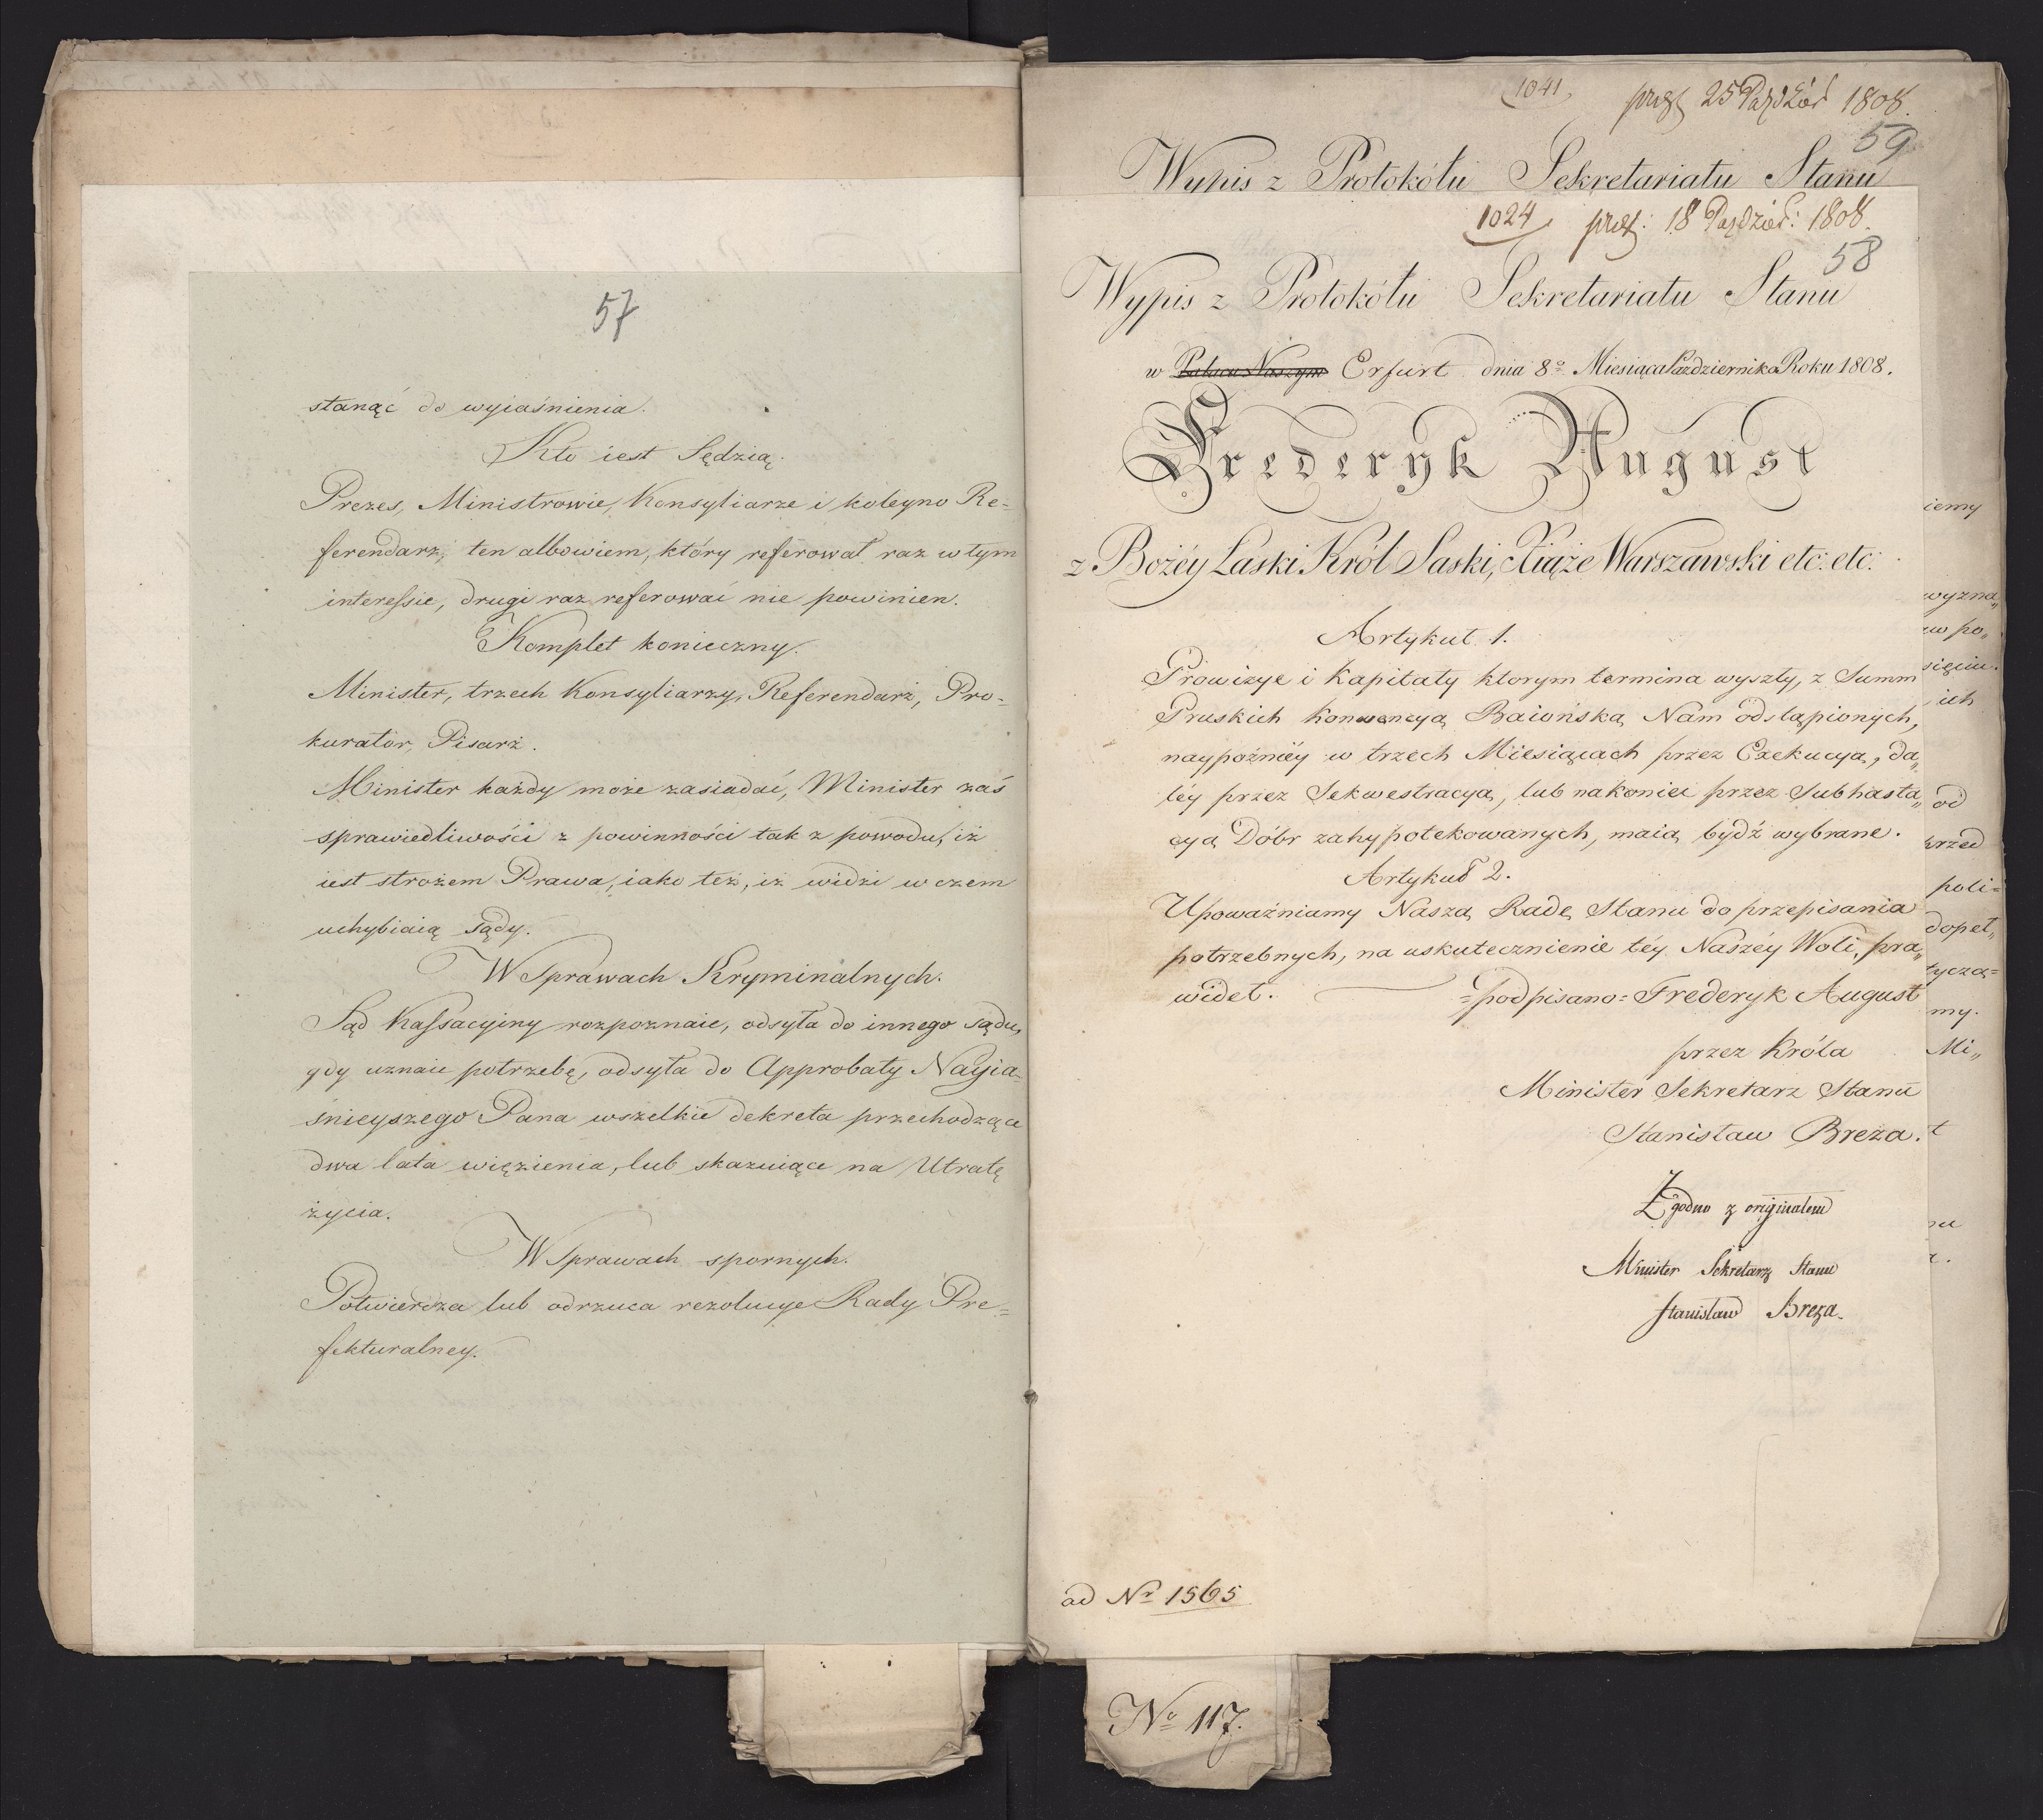 57
stanąć do wyiaśnienia.
Kto iest Sędzią.
Prezes, Ministrowie, Konsyliarze i koleyno Re=
ferendarz, ten albowiem, który referował raz w tym
interessie, drugi raz referować nie powinien.
Komplet konieczny.
Minister, trzech Konsyliarzy, Referendarz, Pro=
kurator, Pisarz.
Minister każdy może zasiadać, Minister zaś
sprawiedliwości z powinności tak z powodu, iż
iest strożem Prawa, iako też, iż widzi w czem
uchybiaią sądy.
W Sprawach Kryminalnych.
Sąd Kassacyiny rozpoznaie, odsyła do innego sądu,
gdy uznaie potrzebę, odsyła do Approbaty Nayia=
śnieyszego Pana wszelkie dekreta przechodzące
dwa lata więzienia, lub skazuiące na Utratę
życia.
W Sprawach spornych.
Potwierdza lub odrzuca rezolucye Rady Pre=
fekturalney.
1041 25 Paździer 1808.
59
Wypis z Protokółu Sekretariatu Stanu
1024 18 Paździer: 1808.
58
Wypis z Protokółu Sekretariatu Stanu
w Pałacu Naszym Erfurt dnia 8º Miesiąca Października Roku 1808.
Frederyk August
z Bożéy Łaski Król Saski, Xiąże Warszawski etc: etc:
Artykuł 1.
Prowizye i Kapitały ktorym termina wyszły, z Summ
Pruskich konwencyą Baiońską Nam odstąpionych,
naypoźniéy w trzech Miesiącach przez Exekucyą, da„
léy przez Sekwestracyą, lub nakoniec przez Subhasta„
cyą Dóbr zahypotekowanych, maią bydź wybrane.
Artykuł 2.
Upoważniamy Naszą Radę Stanu do przepisania
potrzebnych, na uskutecznienie téy Naszéy Woli, pra„
wideł. =podpisano= Frederyk August
przez Króla
Minister Sekretarz Stanu
Stanisław Breza.
Zgodno z originałem
Minister Sekretarz Stanu
Stanisław Breza.
ad Nr 1565
iemy
wyzna„
zw po„
sięciu.
ich
od
przed
poli=
dopeł„
tyczą=
my.
Mi„
t
Nº 117.